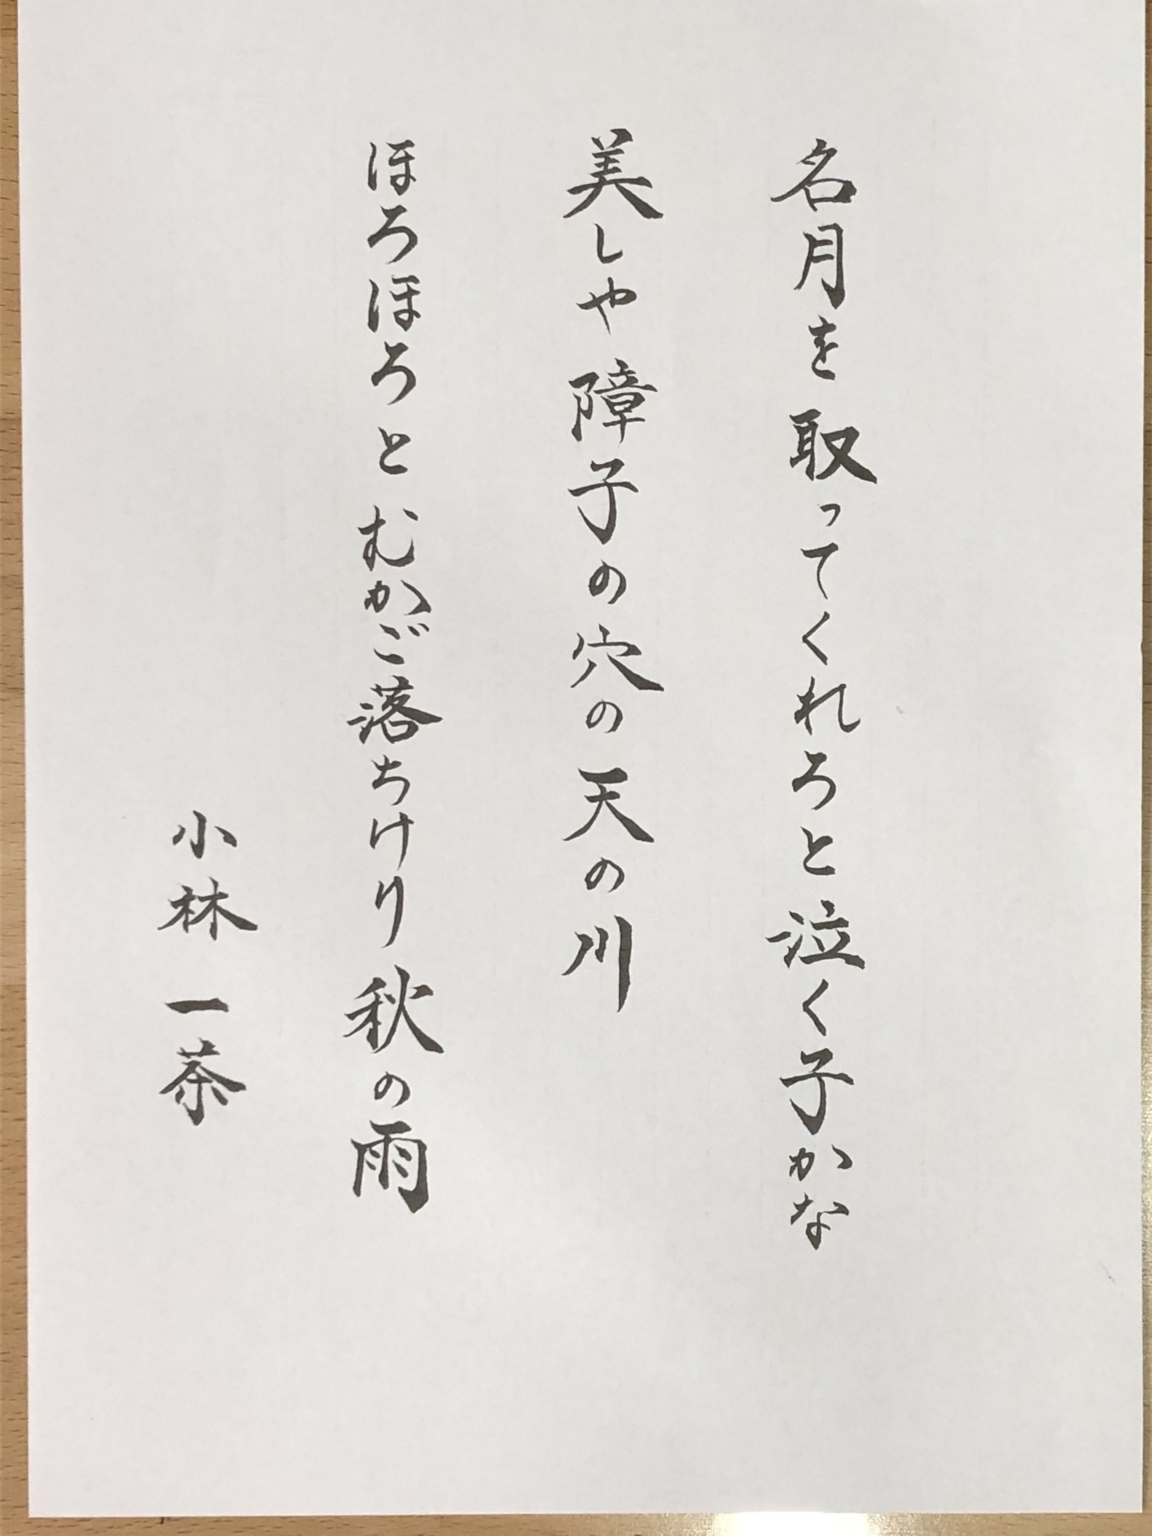 名月を取ってくれろと泣く子かな
美しや障子の穴の天の川
ほろほろとむかご落ちけり秋の雨
小林一茶